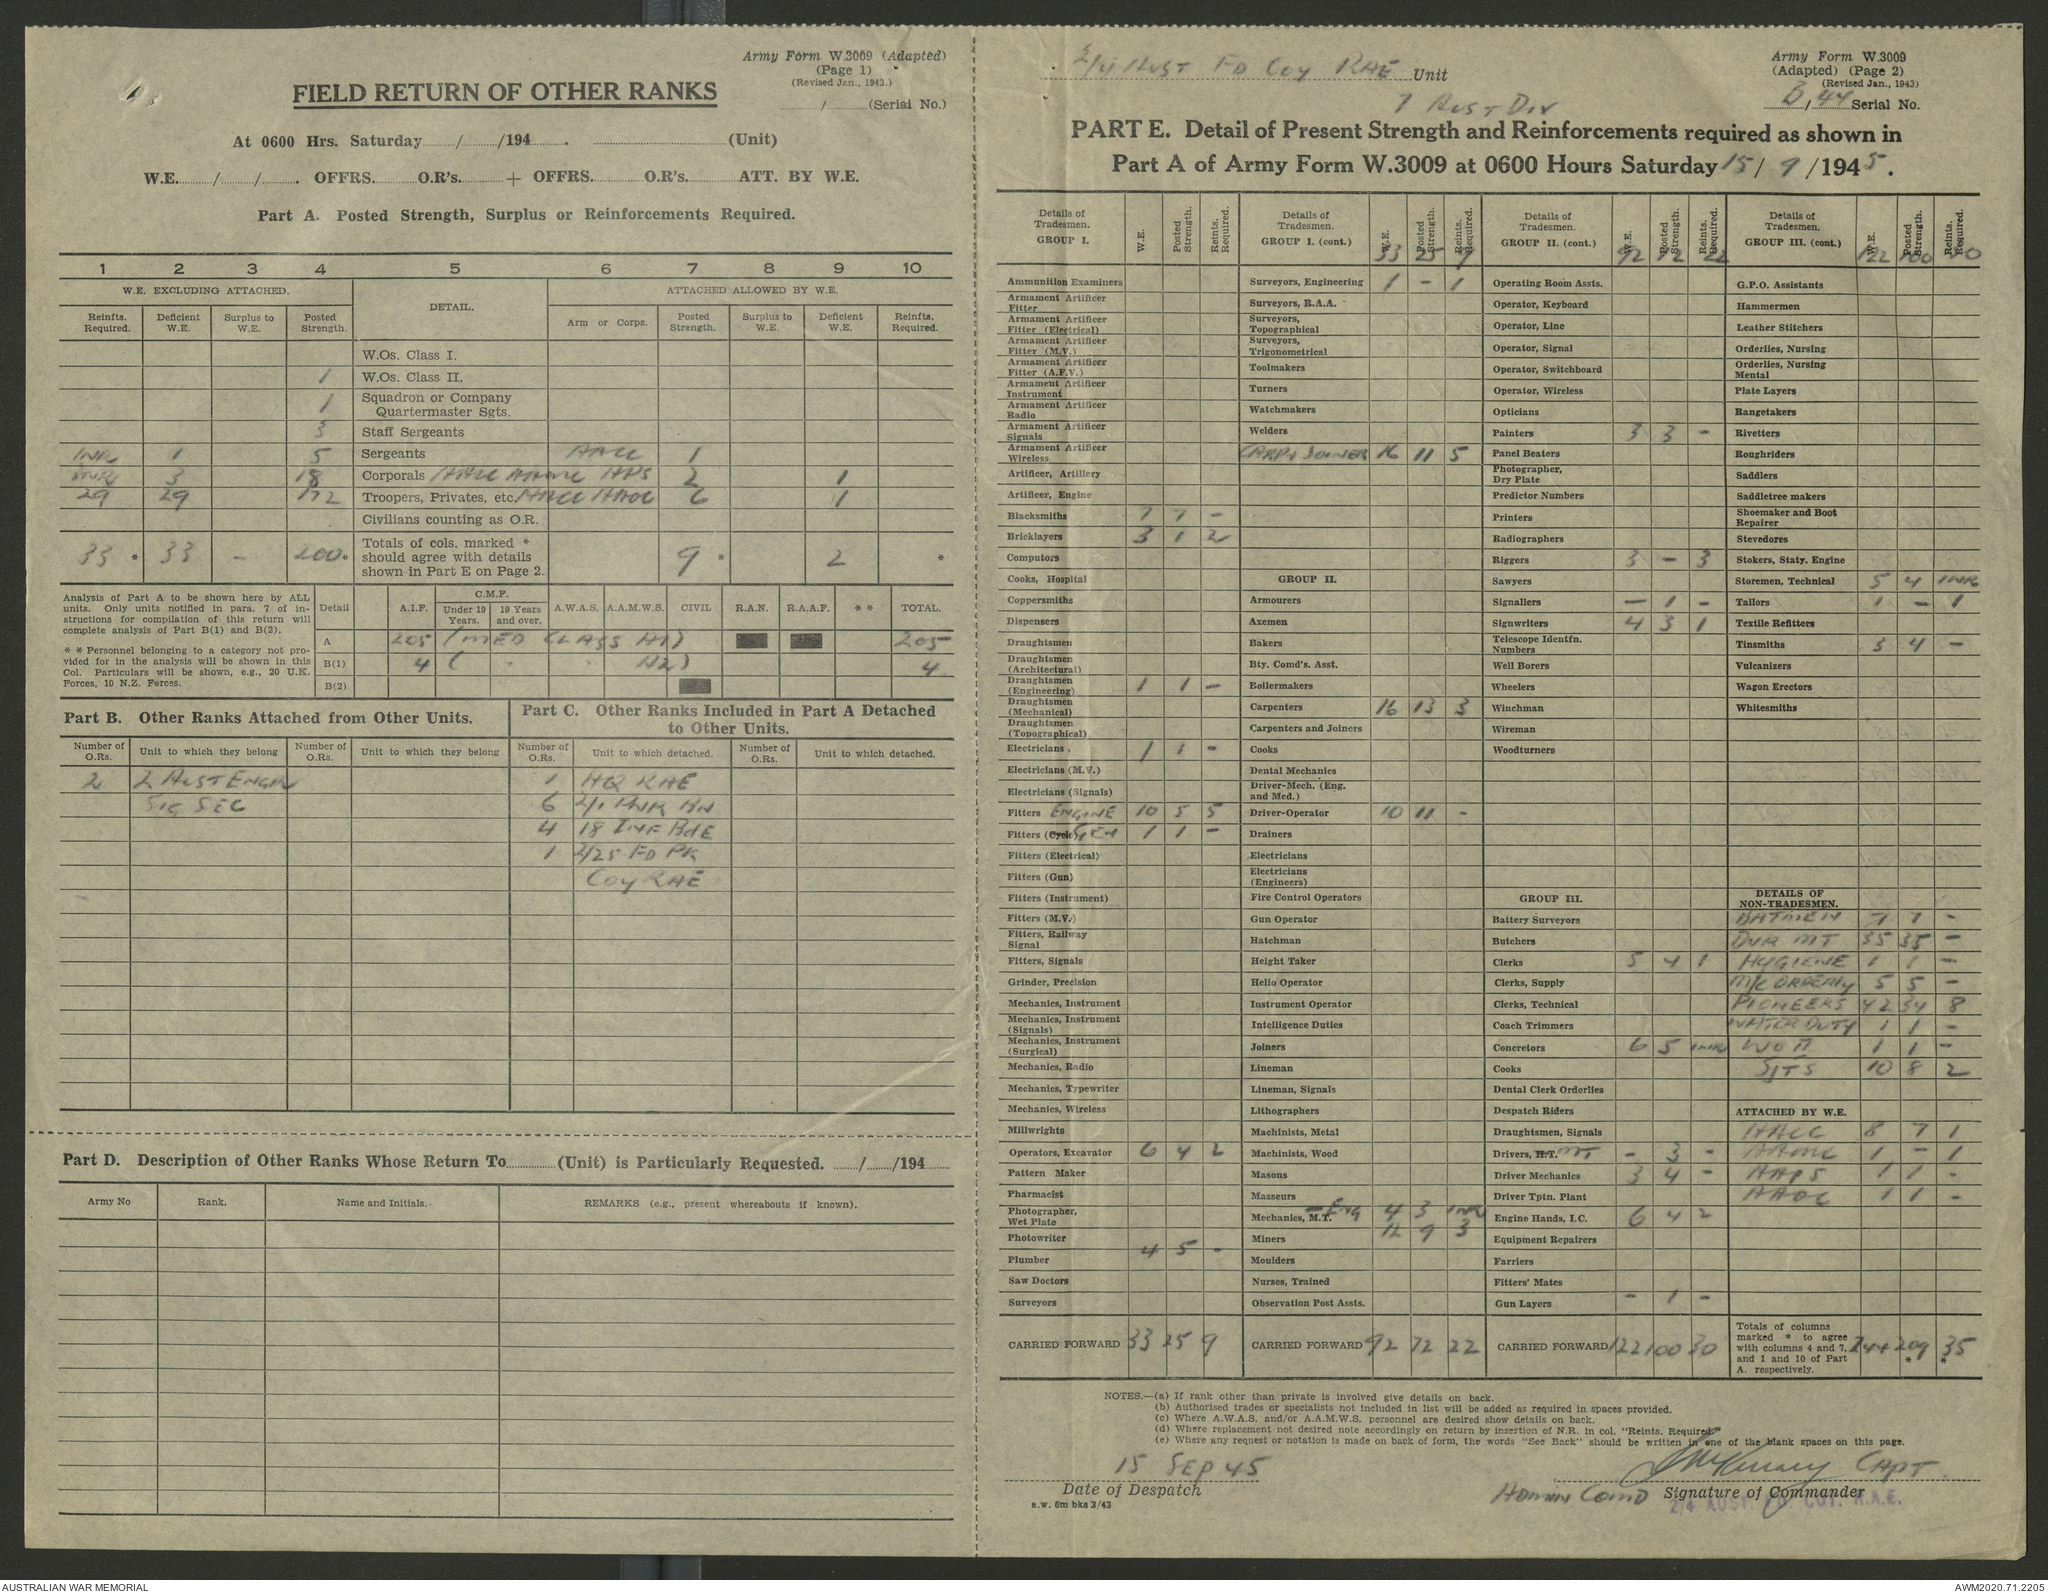 Army Form W.3009 (Adapted)
(Page 1)
(Revised Jan., 1943.)
FIELD RETURN OF OTHER RANKS
/ (Serial No.)
At 0600 Hrs. Saturday / /194 . (Unit)
W.E. / / . OFFRS. O.R's. + OFFRS. O.R's. ATT. BY W.E.
Part A. Posted Strength, Surplus or Reinforcements Required.
1 2 3 4 5 6 7 8 9 10
W.E. EXCLUDING ATTACHED. DETAIL. ATTACHED ALLOWED BY W.E.
Reinfts. Required. Deficient W.E. Surplus to W.E. Posted Strength. Arm or Corps. Posted Strength. Surplus to W.E. Deficient W.E. Reinfts. Required.
W.Os. Class I.
1 W.Os. Class II.
1 Squadron or Company Quartermaster Sgts.
3 Staff Sergeants
INR 1 5 Sergeants AACC 1
INR 3 18 Corporals AACC AAMC AAPS 2 1
29 29 172 Troopers, Privates, etc. AACC AAOC 6 1
Civilians counting as O.R.
33 * 33 - 200 * Totals of cols. marked * should agree with details shown in Part E on Page 2. 9 * 2 *
Analysis of Part A to be shown here by ALL units. Only units notified in para. 7 of instructions for compilation of this return will complete analysis of Part B(1) and B(2).
* * Personnel belonging to a category not provided for in the analysis will be shown in this Col. Particulars will be shown, e.g., 20 U.K. Forces, 10 N.Z. Forces.
Detail A.I.F. C.M.F. Under 19 Years. 19 Years and over. A.W.A.S. A.A.M.W.S. CIVIL R.A.N. R.A.A.F. * * TOTAL.
A 205 (MED CLASS A1) 205
B(1) 4 ( " " A2) 4
B(2)
Part B. Other Ranks Attached from Other Units.
Part C. Other Ranks Included in Part A Detached to Other Units.
Number of O.Rs. Unit to which they belong Number of O.Rs. Unit to which they belong Number of O.Rs. Unit to which detached. Number of O.Rs. Unit to which detached.
2 2 AUST ENGR 1 HQ RAE
SIG SEC 6 2/1 PNR BN
4 18 INF BDE
1 2/25 FD PK
COY RAE
Part D. Description of Other Ranks Whose Return To (Unit) is Particularly Requested. / /194
Army No Rank. Name and Initials. REMARKS (e.g., present whereabouts if known).
2/4 AUST FD COY RAE Unit
7 AUST DIV
Army Form W.3009
(Adapted) (Page 2)
(Revised Jan., 1943)
B/44 Serial No.
PART E. Detail of Present Strength and Reinforcements required as shown in
Part A of Army Form W.3009 at 0600 Hours Saturday 15/ 9 /1945.
Details of Tradesmen. GROUP I. W.E. Posted Strength. Reints. Required.
Ammunition Examiners
Armament Artificer Fitter
Armament Artificer Fitter (Electrical)
Armament Artificer Fitter (M.V.)
Armament Artificer Fitter (A.F.V.)
Armament Artificer Instrument
Armament Artificer Radio
Armament Artificer Signals
Armament Artificer Wireless
Artificer, Artillery
Artificer, Engine
Blacksmiths 7 7 -
Bricklayers 3 1 2
Computors
Cooks, Hospital
Coppersmiths
Dispensers
Draughtsmen
Draughtsmen (Architectural)
Draughtsmen (Engineering) 1 1 -
Draughtsmen (Mechanical)
Draughtsmen (Topographical)
Electricians 1 1 -
Electricians (M.V.)
Electricians (Signals)
Fitters ENGINE 10 5 5
Fitters (Cycle) GEN 1 1 -
Fitters (Electrical)
Fitters (Gun)
Fitters (Instrument)
Fitters (M.V.)
Fitters, Railway Signal
Fitters, Signals
Grinder, Precision
Mechanics, Instrument
Mechanics, Instrument (Signals)
Mechanics, Instrument (Surgical)
Mechanics, Radio
Mechanics, Typewriter
Mechanics, Wireless
Millwrights
Operators, Excavator 6 4 2
Pattern Maker
Pharmacist
Photographer, Wet Plate
Photowriter
Plumber 4 5 -
Saw Doctors
Surveyors
CARRIED FORWARD 33 25 9
Details of Tradesmen. GROUP I. (cont.) W.E. Posted Strength. Reints. Required.
33 25 9
Surveyors, Engineering 1 - 1
Surveyors, R.A.A.
Surveyors, Topographical
Surveyors, Trigonometrical
Toolmakers
Turners
Watchmakers
Welders
CARP & JOINER 16 11 5
GROUP II.
Armourers
Axemen
Bakers
Bty. Comd's. Asst.
Boilermakers
Carpenters 16 13 3
Carpenters and Joiners
Cooks
Dental Mechanics
Driver-Mech. (Eng. and Med.)
Driver-Operator 10 11 -
Drainers
Electricians
Electricians (Engineers)
Fire Control Operators
Gun Operator
Hatchman
Height Taker
Helio Operator
Instrument Operator
Intelligence Duties
Joiners
Lineman
Lineman, Signals
Lithographers
Machinists, Metal
Machinists, Wood
Masons
Masseurs
Mechanics, M.T. ENG 4 3 INR
Miners 12 9 3
Moulders
Nurses, Trained
Observation Post Assts.
CARRIED FORWARD 92 72 22
Details of Tradesmen. GROUP II. (cont.) W.E. Posted Strength. Reints. Required.
92 72 22
Operating Room Assts.
Operator, Keyboard
Operator, Line
Operator, Signal
Operator, Switchboard
Operator, Wireless
Opticians
Painters 3 3 -
Panel Beaters
Photographer, Dry Plate
Predictor Numbers
Printers
Radiographers
Riggers 3 - 3
Sawyers
Signallers - 1 -
Signwriters 4 3 1
Telescope Identfn. Numbers
Well Borers
Wheelers
Winchman
Wireman
Woodturners
GROUP III.
Battery Surveyors
Butchers
Clerks 5 4 1
Clerks, Supply
Clerks, Technical
Coach Trimmers
Concretors 6 5 INR
Cooks
Dental Clerk Orderlies
Despatch Riders
Draughtsmen, Signals
Drivers, H.T. MT - 3 -
Driver Mechanics 3 4 -
Driver Tptn. Plant
Engine Hands, I.C. 6 4 2
Equipment Repairers
Farriers
Fitters' Mates
Gun Layers - 1 -
CARRIED FORWARD 122 100 30
Details of Tradesmen. GROUP III. (cont.) W.E. Posted Strength. Reints. Required.
122 100 30
G.P.O. Assistants
Hammermen
Leather Stitchers
Orderlies, Nursing
Orderlies, Nursing Mental
Plate Layers
Rangetakers
Rivetters
Roughriders
Saddlers
Saddletree makers
Shoemaker and Boot Repairer
Stevedores
Stokers, Staty. Engine
Storemen, Technical 5 4 INR
Tailors 1 - 1
Textile Refitters
Tinsmiths 3 4 -
Vulcanizers
Wagon Erectors
Whitesmiths
DETAILS OF NON-TRADESMEN.
BATMEN 7 7 -
DVR MT 35 35 -
HYGIENE 1 1 -
M/C ORDERLY 5 5 -
PIONEERS 42 34 8
WATER DUTY 1 1 -
WO II 1 1 -
SJTS 10 8 2
ATTACHED BY W.E.
AACC 8 7 1
AAMC 1 - 1
AAPS 1 1 -
AAOC 1 1 -
Totals of columns marked * to agree with columns 4 and 7, and 1 and 10 of Part A. respectively. 244 209 * 35 *
NOTES.—(a) If rank other than private is involved give details on back.
(b) Authorised trades or specialists not included in list will be added as required in spaces provided.
(c) Where A.W.A.S. and/or A.A.M.W.S. personnel are desired show details on back.
(d) Where replacement not desired note accordingly on return by insertion of N.R. in col. "Reints. Required."
(e) Where any request or notation is made on back of form, the words "See Back" should be written in one of the blank spaces on this page.
15 SEP 45
CAPT
Date of Despatch
ADMIN COMD Signature of Commander
R.W. 6m bks 3/43
2/4 AUST. FD. COY. R.A.E.
AUSTRALIAN WAR MEMORIAL
AWM2020.71.2205